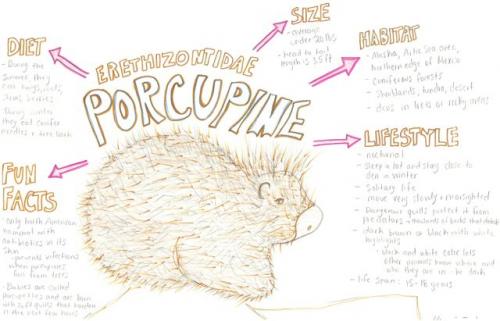 ERETHIZONTIDAE
PORCUPINE
DIET
- During the
Summer they
eat twigs, roots,
stems, berries
During winter
they eat conifer
needles & tree bark
FUN
FACTS
- only North American
mammal with
antibiotics in its
skin
- prevents infections
when porcupines
fall from trees
- Babies are called
porcupettes and are born
with soft quills that harden
in the first few hours
SIZE
- average
under 20 lbs
- head to tail
length is 3.5 ft
HABITAT
- Alaska,
Northern edge of Mexico
- Coniferous forests
- Shrublands, tundra, desert
- dens in trees or rocky areas
LIFESTYLE
- nocturnal
- Sleep a lot and stay close to
den in winter
- Solitary life
- move very slowly & nearsighted
- Dangerous quills protect it from
predators thousands of quills that detach
- dark brown or black with white
highlights
- black and white color lets
other animals know where and
who they are in the dark
- life span: 15-18 years